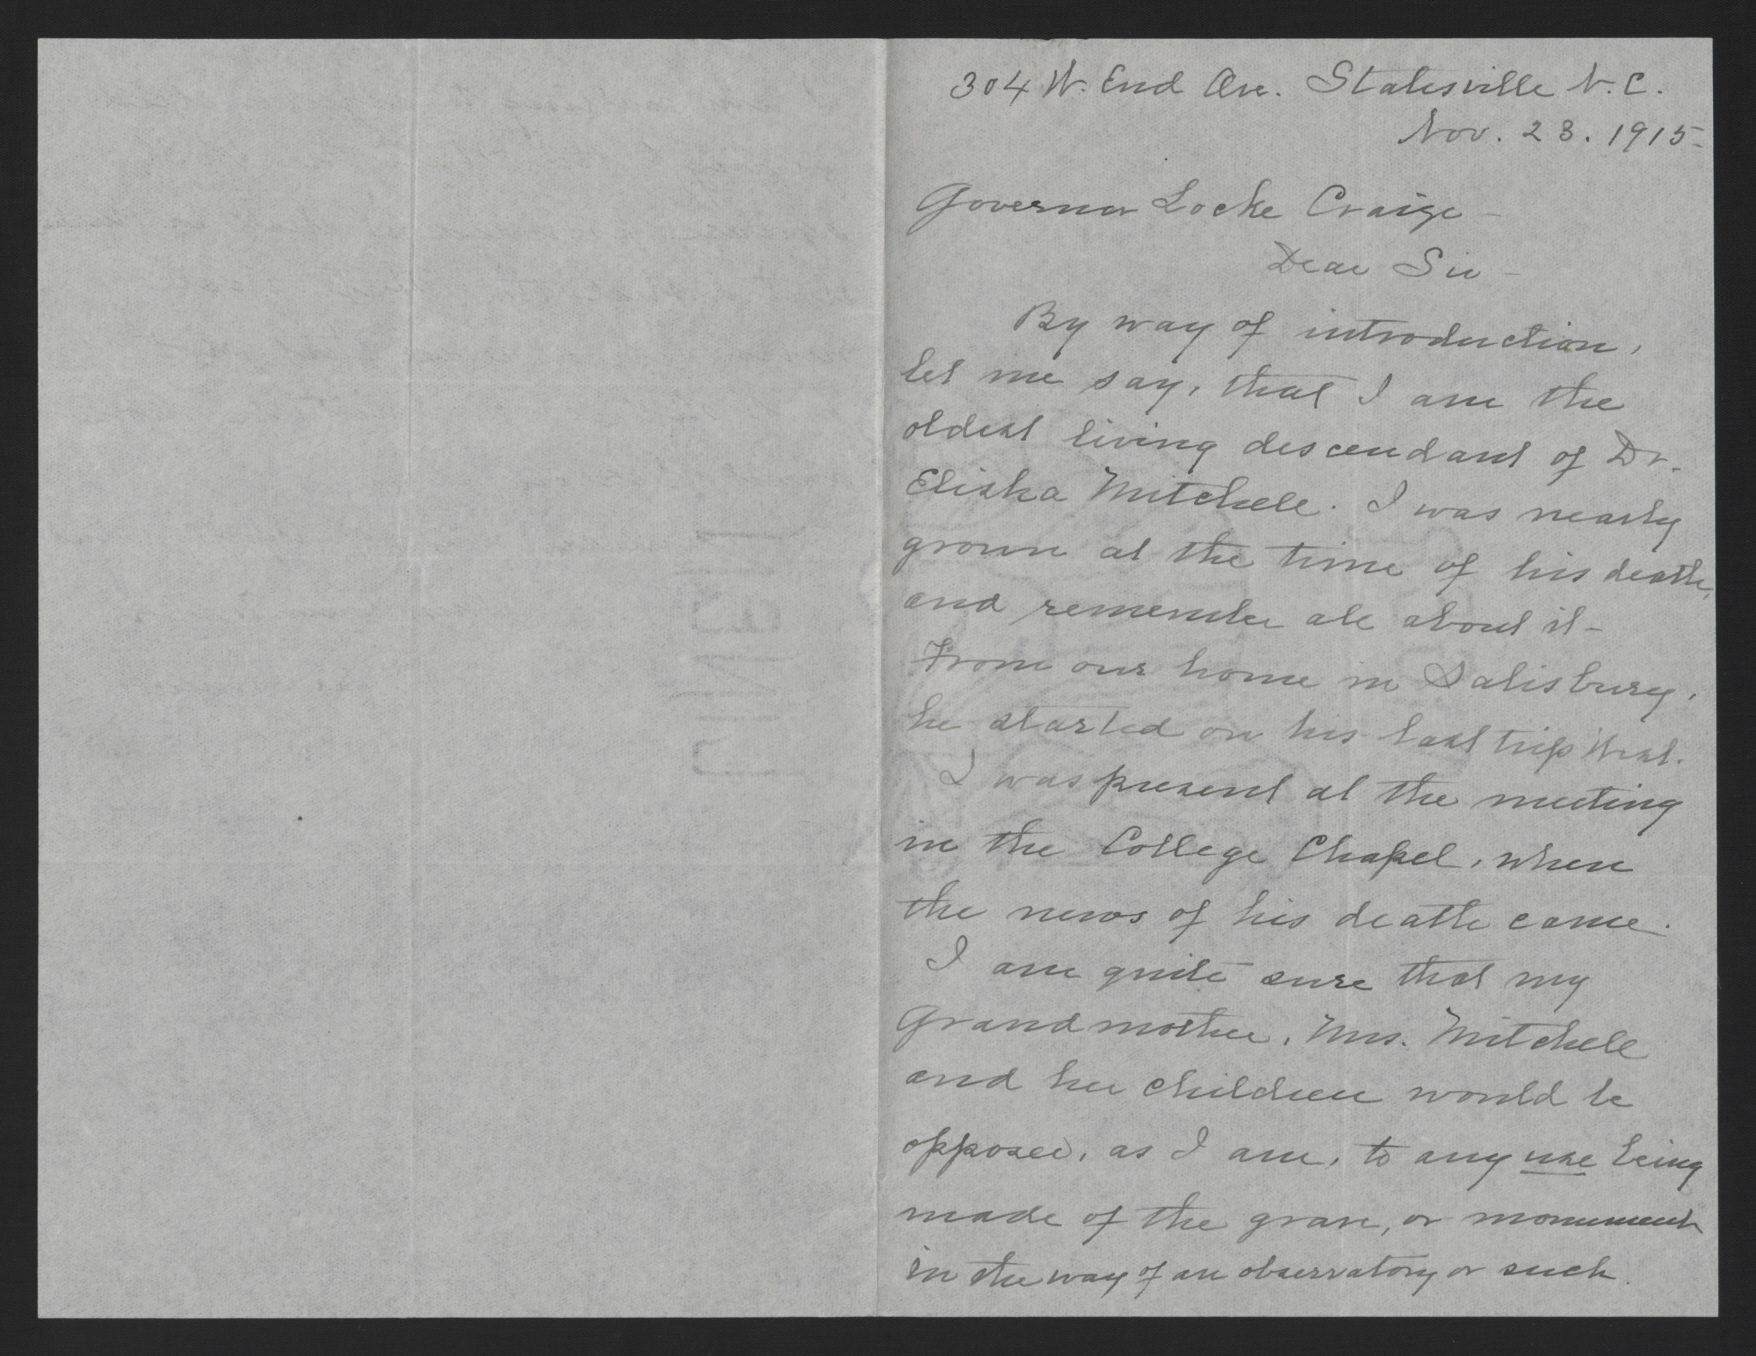 304 W. End Ave. Statesville N.C.
Nov. 23. 1915-
Governor Locke Craige -
Dear Sir -
By way of introduction,
let me say, that I am the
oldest living descendant of Dr.
Elisha Mitchell. I was nearly
grown at the time of his death,
and remember all about it -
From our home in Salisbury,
he started on his last trip West.
I was present at the meeting
in the College Chapel, when
the news of his death came.
I am quite sure that my
Grandmother, Mrs. Mitchell
and her children would be
opposed, as I am, to any use being
made of the grave, or monument
in the way of an observatory or such